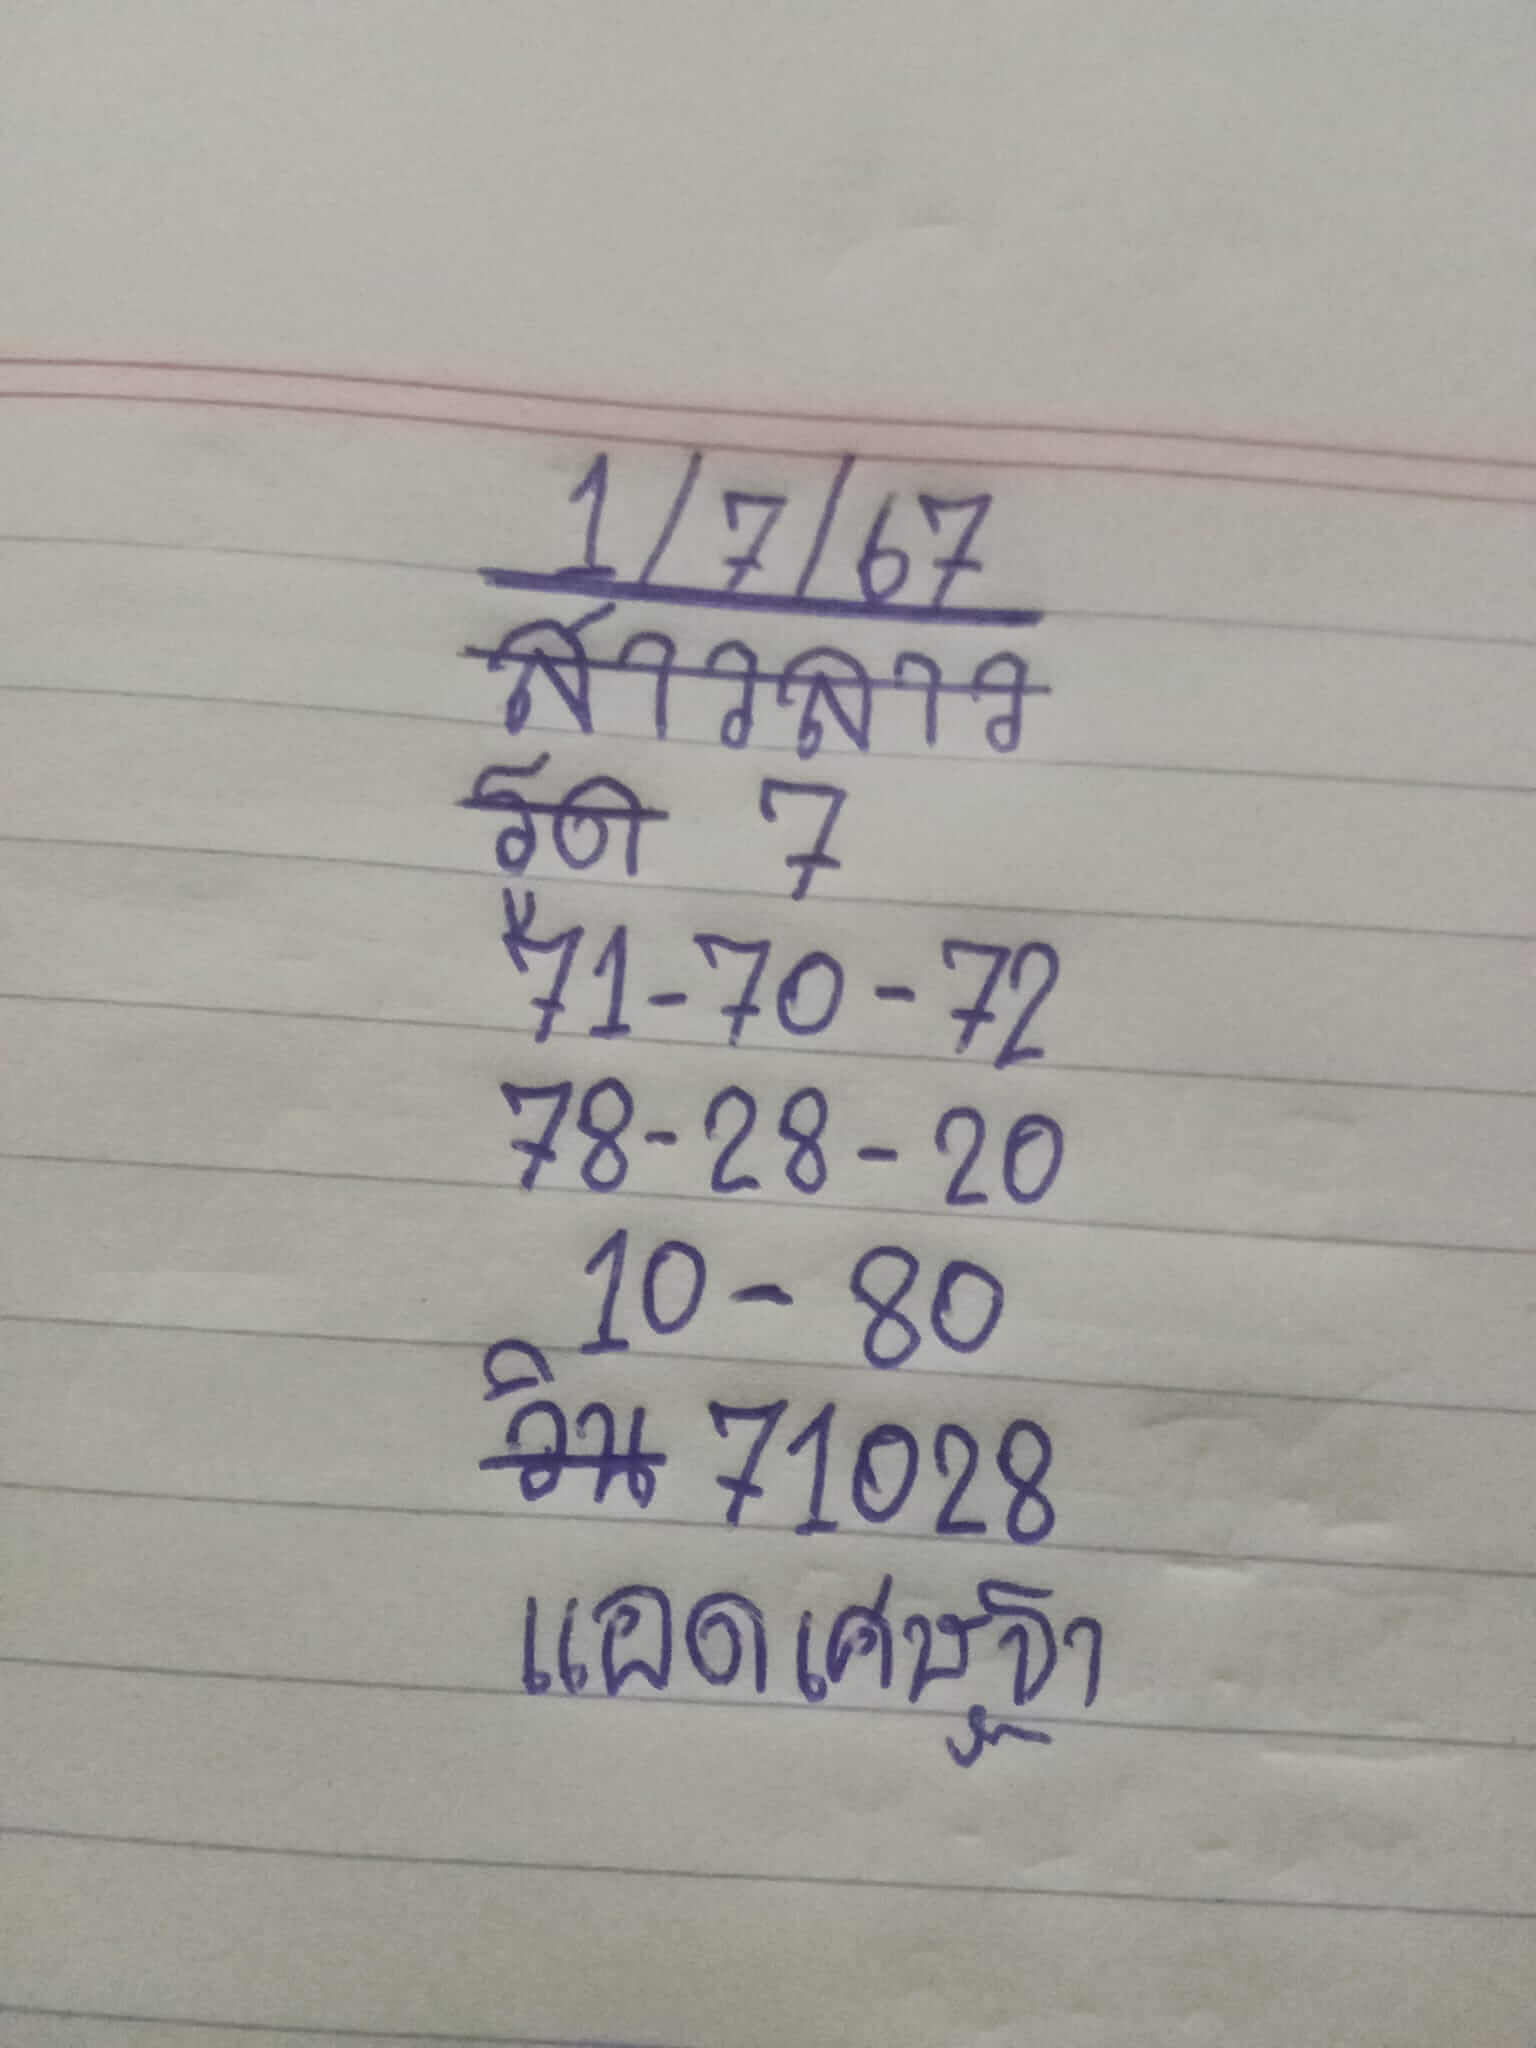 1/7/67
สาวลาว
รัด 7
"71-70-72
78-28-20
10-80
วิน 71028
แอดเศรษฐี